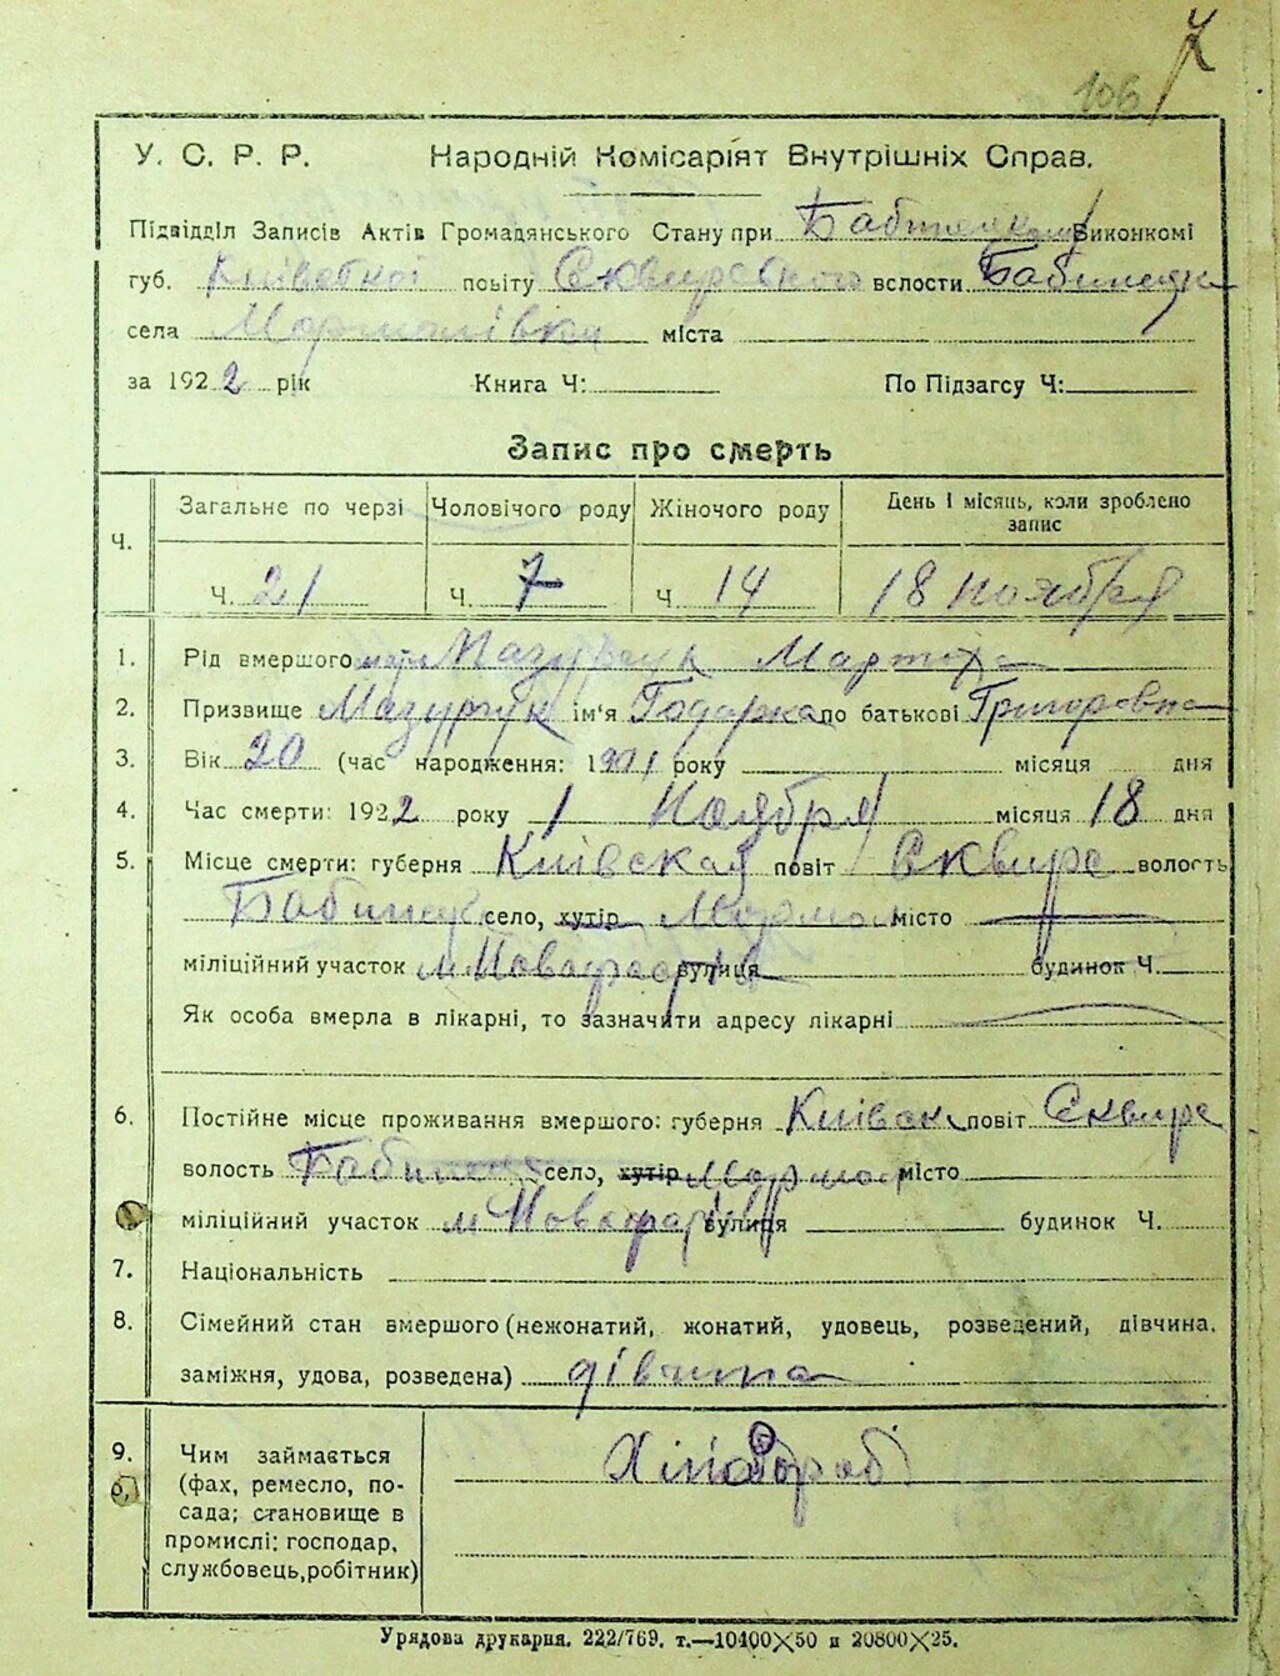 106
У. С. Р. Р. Народній Комісаріят Внутрішніх Справ.
Підвідділ Записів Актів Громадянського Стану при Виконкомі
губ. Київської повіту Сквирського вслости Бабинецк
села міста
за 1922 рік Книга Ч: По Підзагсу Ч:
Запис про смерть
Загальне по черзі Чоловічого роду Жіночого роду День і місяць, коли зроблено
запис
Ч.
Ч. 21 Ч. 7 Ч 14 18 Ноября
1. Рід вмершого Мазурчук
2. Призвище Мазурчук ім'я Тодорка по батькові Григоровна
3. Вік 20 (час народження: 1901 року місяця дня
4. Час смерти: 1922 року Ноября місяця 18 дня
5. Місце смерти: губерня Київская повіт Сквирс волость
Бабинецк село, хутір Мармол місто
міліційний участок м. Новофастів вулиця будинок Ч.
Як особа вмерла в лікарні, то зазначити адресу лікарні
6. Постійне місце проживання вмершого: губерня Київск повіт Сквирс
волость Бабинец село, хутір Мармол місто
міліційний участок м Новофастів вулиця будинок Ч.
7. Національність
8. Сімейний стан вмершого (нежонатий, жонатий, удовець, розведений, дівчина,
заміжня, удова, розведена) дівчина
9. Чим займається Хліборób
(фах, ремесло, по-
сада; становище в
промислі: господар,
службовець, робітник)
Урядова друкарня. 222/769. т.—10400×50 и 20800×25.